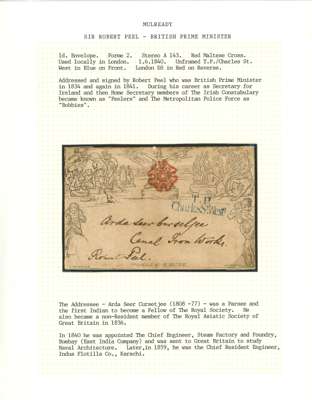 MULREADY
SIR ROBERT PEEL - BRITISH PRIME MINISTER
1d. Envelope. Forme 2. Stereo A 143. Red Maltese Cross.
Used locally in London. 1.6.1840. Unframed T.P./Charles St.
West in Blue on Front. London E8 in Red on Reverse.
Addressed and signed by Robert Peel who was British Prime Minister
in 1834 and again in 1841. During his career as Secretary for
Ireland and then Home Secretary members of The Irish Constabulary
became known as "Peelers" and The Metropolitan Police Force as
"Bobbies".
T.P
Charles St West
Arda seer Cursetjee
Canal Iron Works.
Robert Peel.
The Addressee - Arda Seer Cursetjee (1808 -77) - was a Parsee and
the first Indian to become a Fellow of The Royal Society. He
also became a non-Resident member of The Royal Asiatic Society of
Great Britain in 1836.
In 1840 he was appointed The Chief Engineer, Steam Factory and Foundry,
Bombay (East India Company) and was sent to Great Britain to study
Naval Architecture. Later,in 1859, he was the Chief Resident Engineer,
Indus Flotilla Co., Karachi.